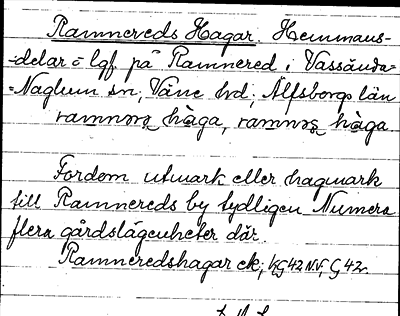 Ramnereds Hagar. Hemmans-
=delar o lgf. på Ramnered i Vassända=
=Naglum sn, Väne hd; Älfsborgs län
ramnərs hàga, ramnərs hàga
Fordom utmark eller hagmark
till Ramnereds by tydligen Numera
flera gårdslägenheter där.
Ramneredshagar ek; kG42 N.V., G 42v.